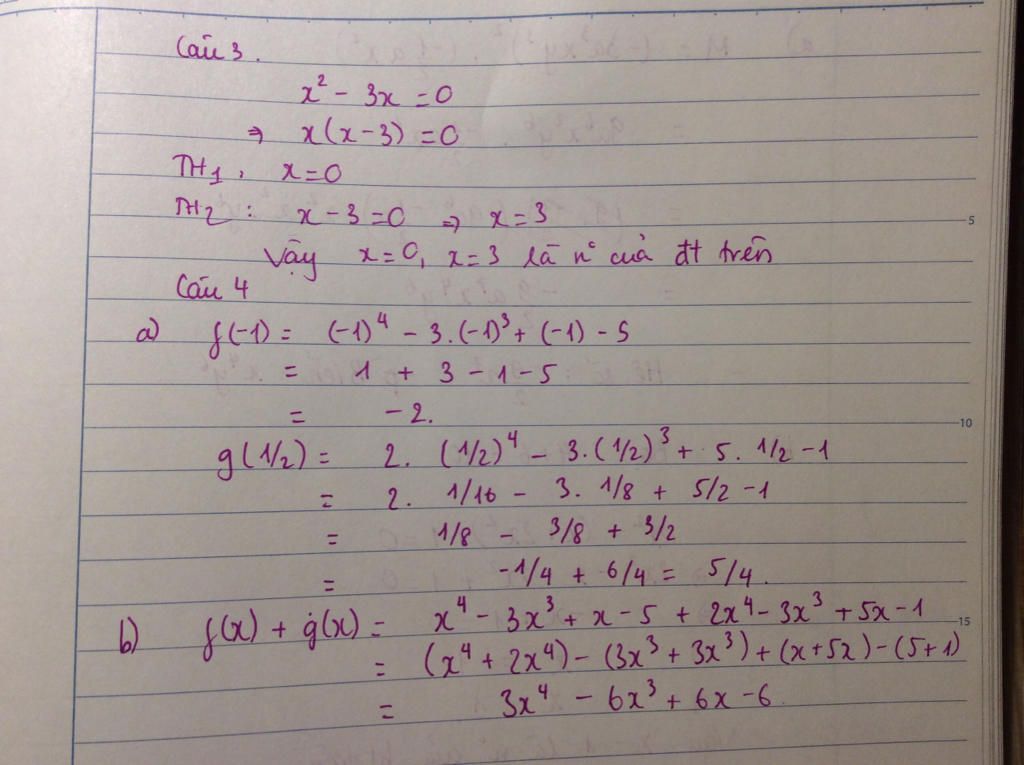 Câu 3.
x² - 3x = 0
⇒ x(x-3) = 0
TH1: x=0
TH2: x-3=0 ⇒ x=3
Vậy x=0, x=3 là n⁰ của đt trên
Câu 4
a) f(-1) = (-1)⁴ - 3.(-1)³ + (-1) - 5
= 1 + 3 - 1 - 5
= -2.
g(1/2) = 2. (1/2)⁴ - 3.(1/2)³ + 5. 1/2 - 1
= 2. 1/16 - 3. 1/8 + 5/2 - 1
= 1/8 - 3/8 + 3/2
= -1/4 + 6/4 = 5/4.
b) f(x) + g(x) = x⁴ - 3x³ + x - 5 + 2x⁴ - 3x³ + 5x - 1
= (x⁴ + 2x⁴) - (3x³ + 3x³) + (x+5x) - (5+1)
= 3x⁴ - 6x³ + 6x - 6
5
10
15